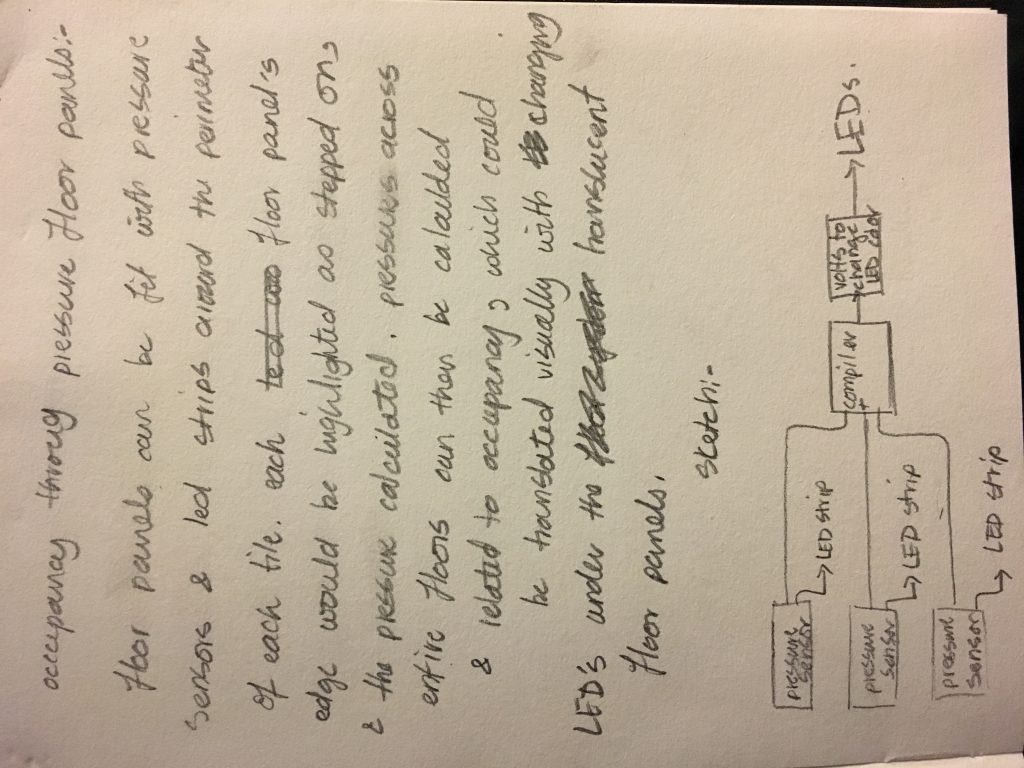 occupancy throug pressure floor panels:-
floor panels can be fit with pressure
sensors & led strips around the perimeter
of each tile. each floor panel's
edge would be highlighted as stepped on
& the pressure calculated. pressures across
entire floors can then be calculded
& related to occupancy, which could
be translated visually with changing
LED's under the translucent
floor panels.
sketch:-
pressure
sensor
LED strip
pressure
sensor
LED strip
pressure
sensor
LED strip
compiler
+
volts to
change
LED color
LEDs.